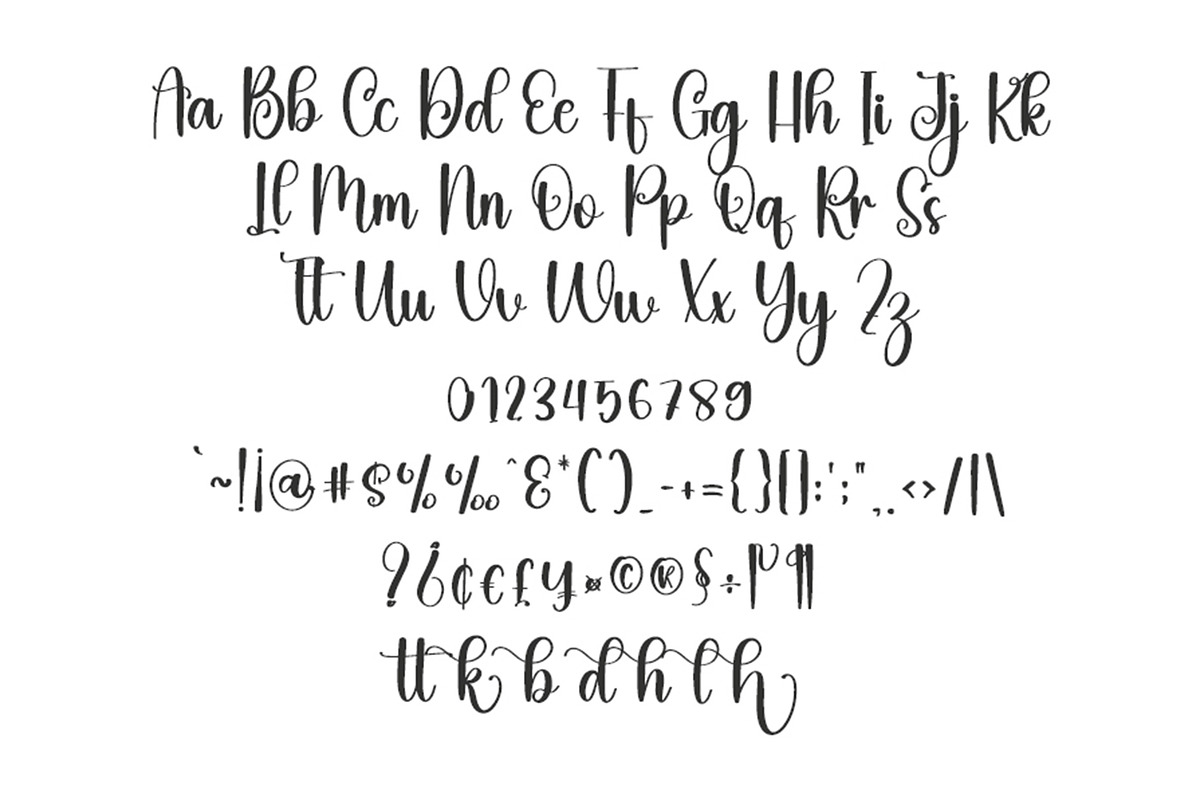 Aa Bb Cc Dd Ee Ff Gg Hh Ii Jj Kk
Ll Mm Nn Oo Pp Qq Rr Ss
Tt Uu Vv Ww Xx Yy Zz
0123456789
`~!¡@#$%‰^&*()_-+={}[]:';",.<>/|\
?¿¢€£¥¤©®§÷|¶
tt k b d h l h